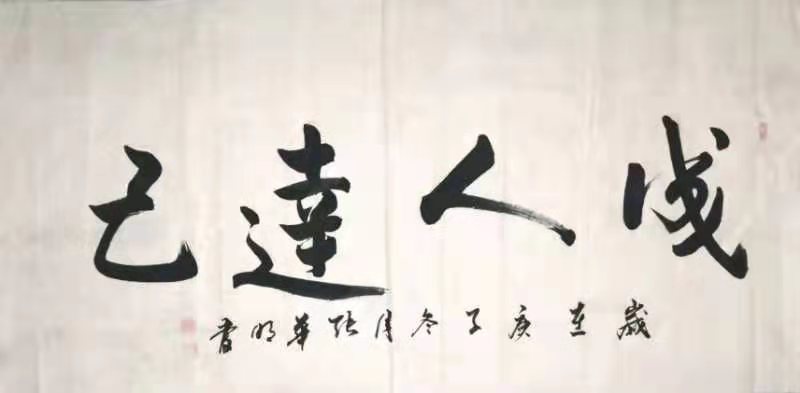 成人達己
歲在庚子冬月張華明書